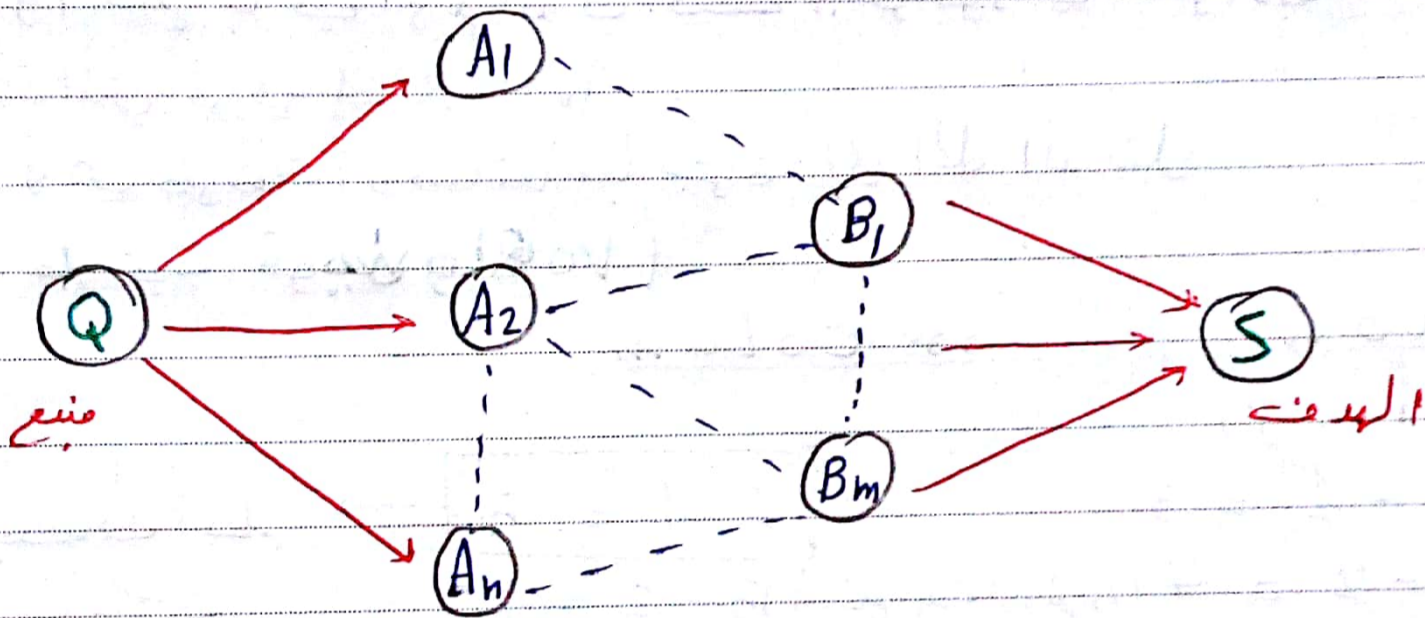 A1
B1
Q
A2
S
منبع
الهدف
Bm
An